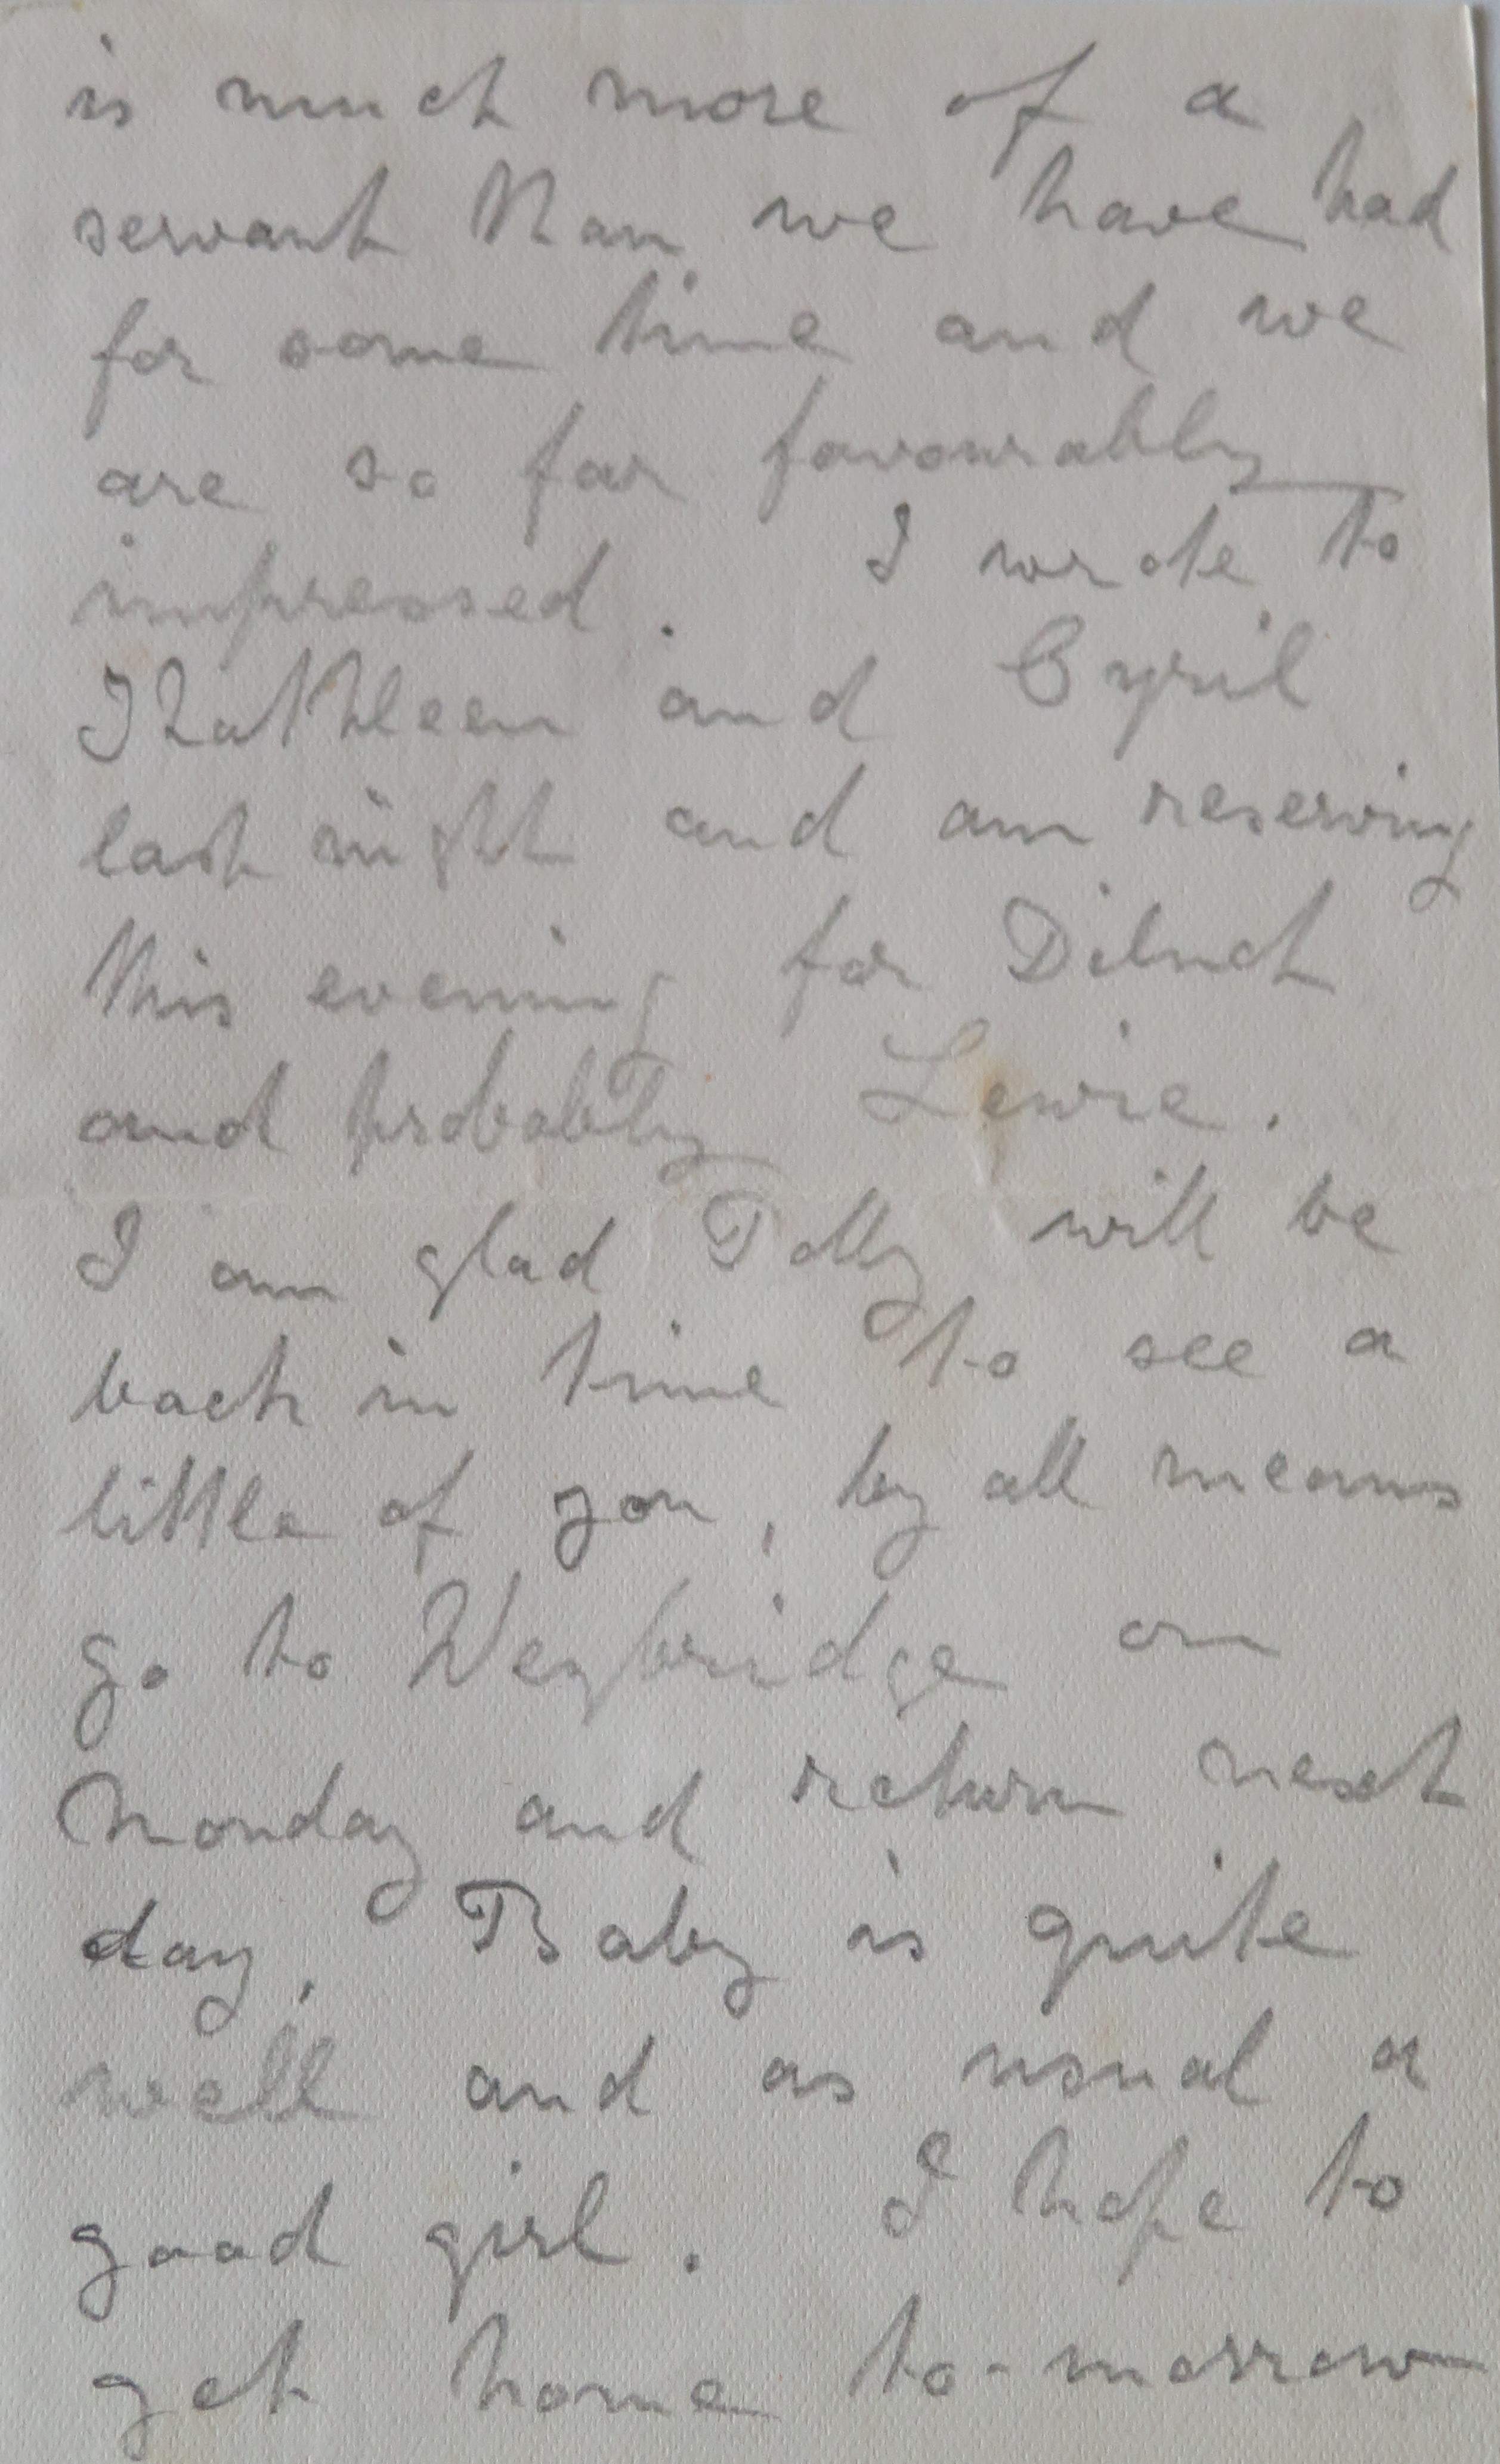 is much more of a
servant than we have had
for some time and we
are so far favourably
impressed. I wrote to
Kathleen and Cyril
last night and am reserving
this evening for
and probably Lewie.
I am glad will be
back in time to see a
little of you, by all means
go to Weybridge on
Monday and return next
day, Baby is quite
well and as usual a
good girl. I hope to
get home to-morrow